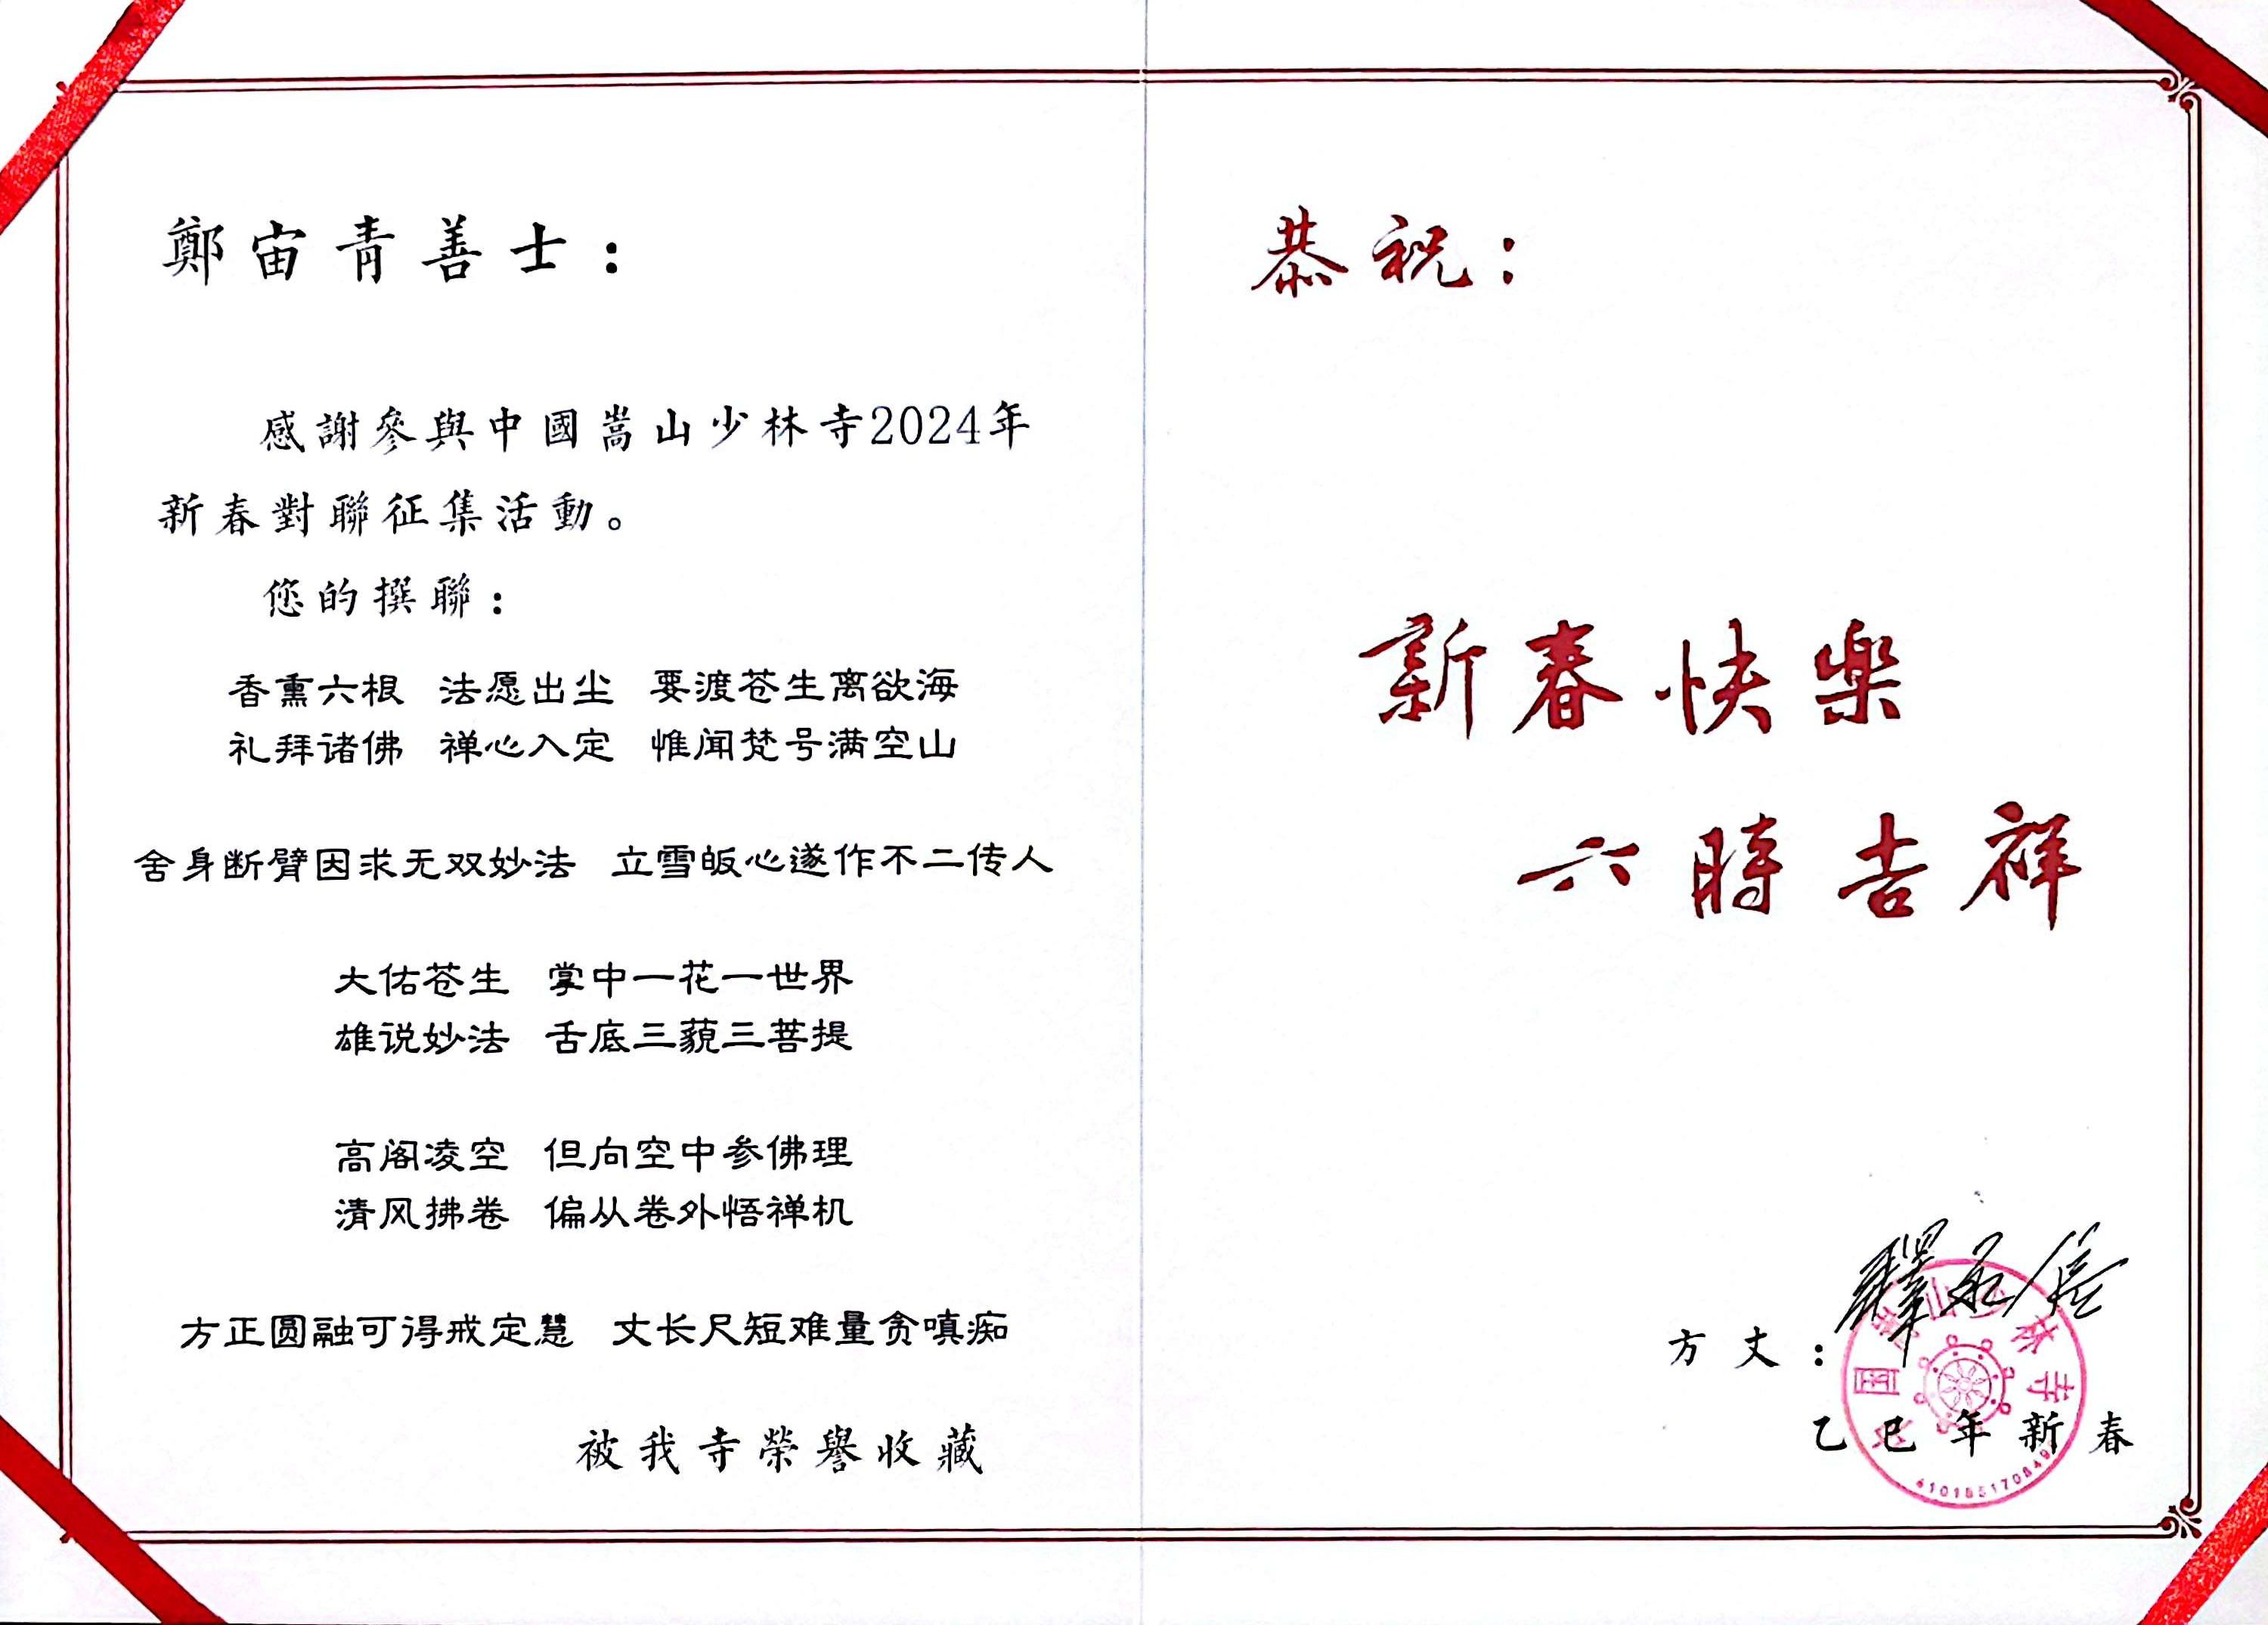 鄭宙青善士：
感謝參與中國嵩山少林寺2024年
新春對聯征集活動。
您的撰聯：
香熏六根 法愿出尘 要渡苍生离欲海
礼拜诸佛 禅心入定 惟闻梵号满空山
舍身断臂因求无双妙法 立雪皈心遂作不二传人
大佑苍生 掌中一花一世界
雄说妙法 舌底三藐三菩提
高阁凌空 但向空中参佛理
清风拂卷 偏从卷外悟禅机
方正圆融可得戒定慧 丈长尺短难量贪嗔痴
被我寺榮譽收藏
恭祝：
新春快樂
六時吉祥
方丈：釋永信
乙巳年新春